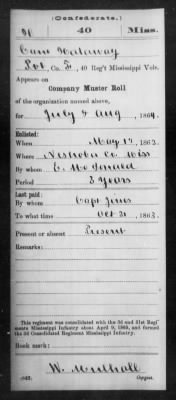 (Confederate.)
40 Miss.
Cam Holoway
Pvt, Co. F, 40 Reg't Mississippi Vols.
Appears on
Company Muster Roll
of the organization named above,
for July & Aug, 1864.
Enlisted:
When May 17, 1863.
Where Neshoba Co Miss
By whom E. McDonald
Period 3 years
Last paid:
By whom Capt Jones
To what time Oct 31, 1863.
Present or absent Present
Remarks:
This regiment was consolidated with the 3d and 31st Regiments Mississippi Infantry about April 9, 1865, and formed the 3d Consolidated Regiment Mississippi Infantry.
Book mark:
(642)
Copyist.